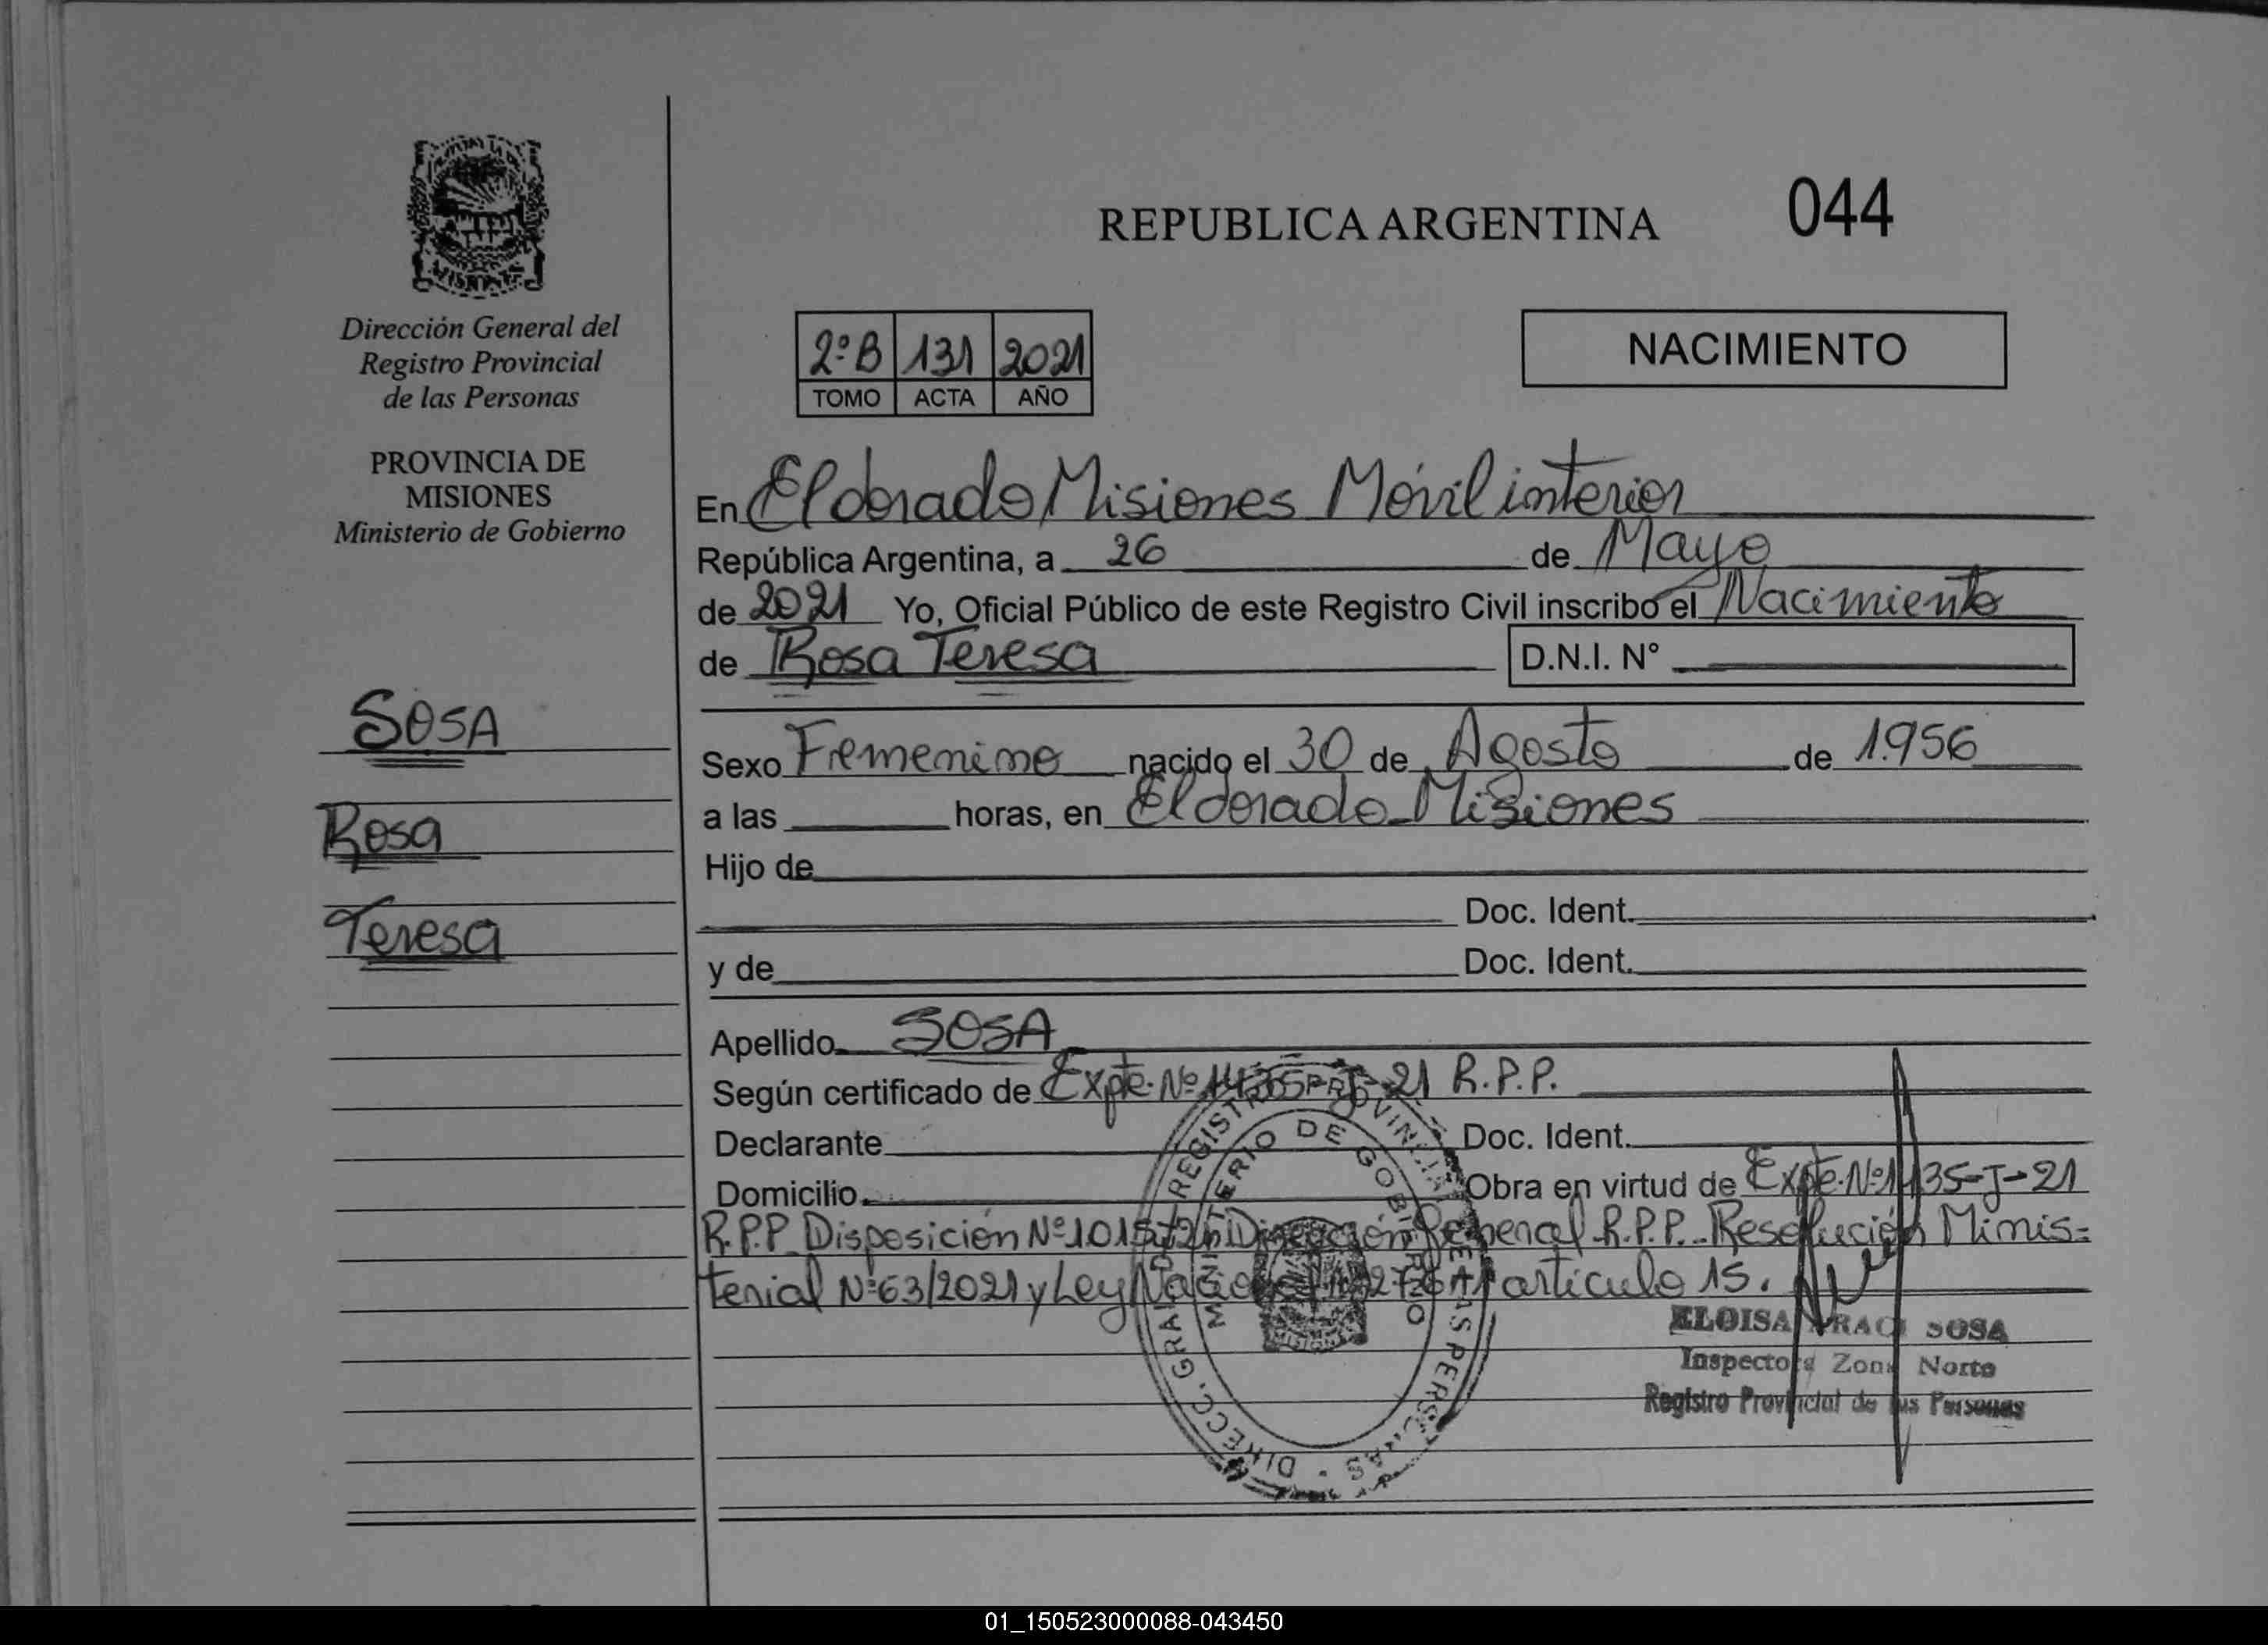 REPUBLICA ARGENTINA 044
Dirección General del
Registro Provincial
de las Personas
PROVINCIA DE
MISIONES
Ministerio de Gobierno
2º B 131 2021
TOMO ACTA AÑO
NACIMIENTO
En Eldorado Misiones Móvil interior
República Argentina, a 26 de Mayo
de 2021 Yo, Oficial Público de este Registro Civil inscribo el Nacimiento
de Rosa Teresa D.N.I. N°
SOSA
Rosa
Teresa
Sexo Femenino nacido el 30 de Agosto de 1.956
a las horas, en Eldorado Misiones
Hijo de
Doc. Ident.
y de Doc. Ident.
Apellido SOSA
Según certificado de Expte. Nº 21 R.P.P.
Declarante Doc. Ident.
Domicilio Obra en virtud de Expte. Nº 1135-J-21
R.P.P. Disposición Nº Dirección General R.P.P. Resolución Minis=
terial Nº 63/2021 y Ley Nacional artículo 15.
ELOISA SOSA
Inspectora Zona Norte
Registro Provincial de las Personas
REGISTRO PROVINCIAL DE LAS PERSONAS
MINISTERIO DE GOBIERNO
DIRECC. GRAL
01_150523000088-043450